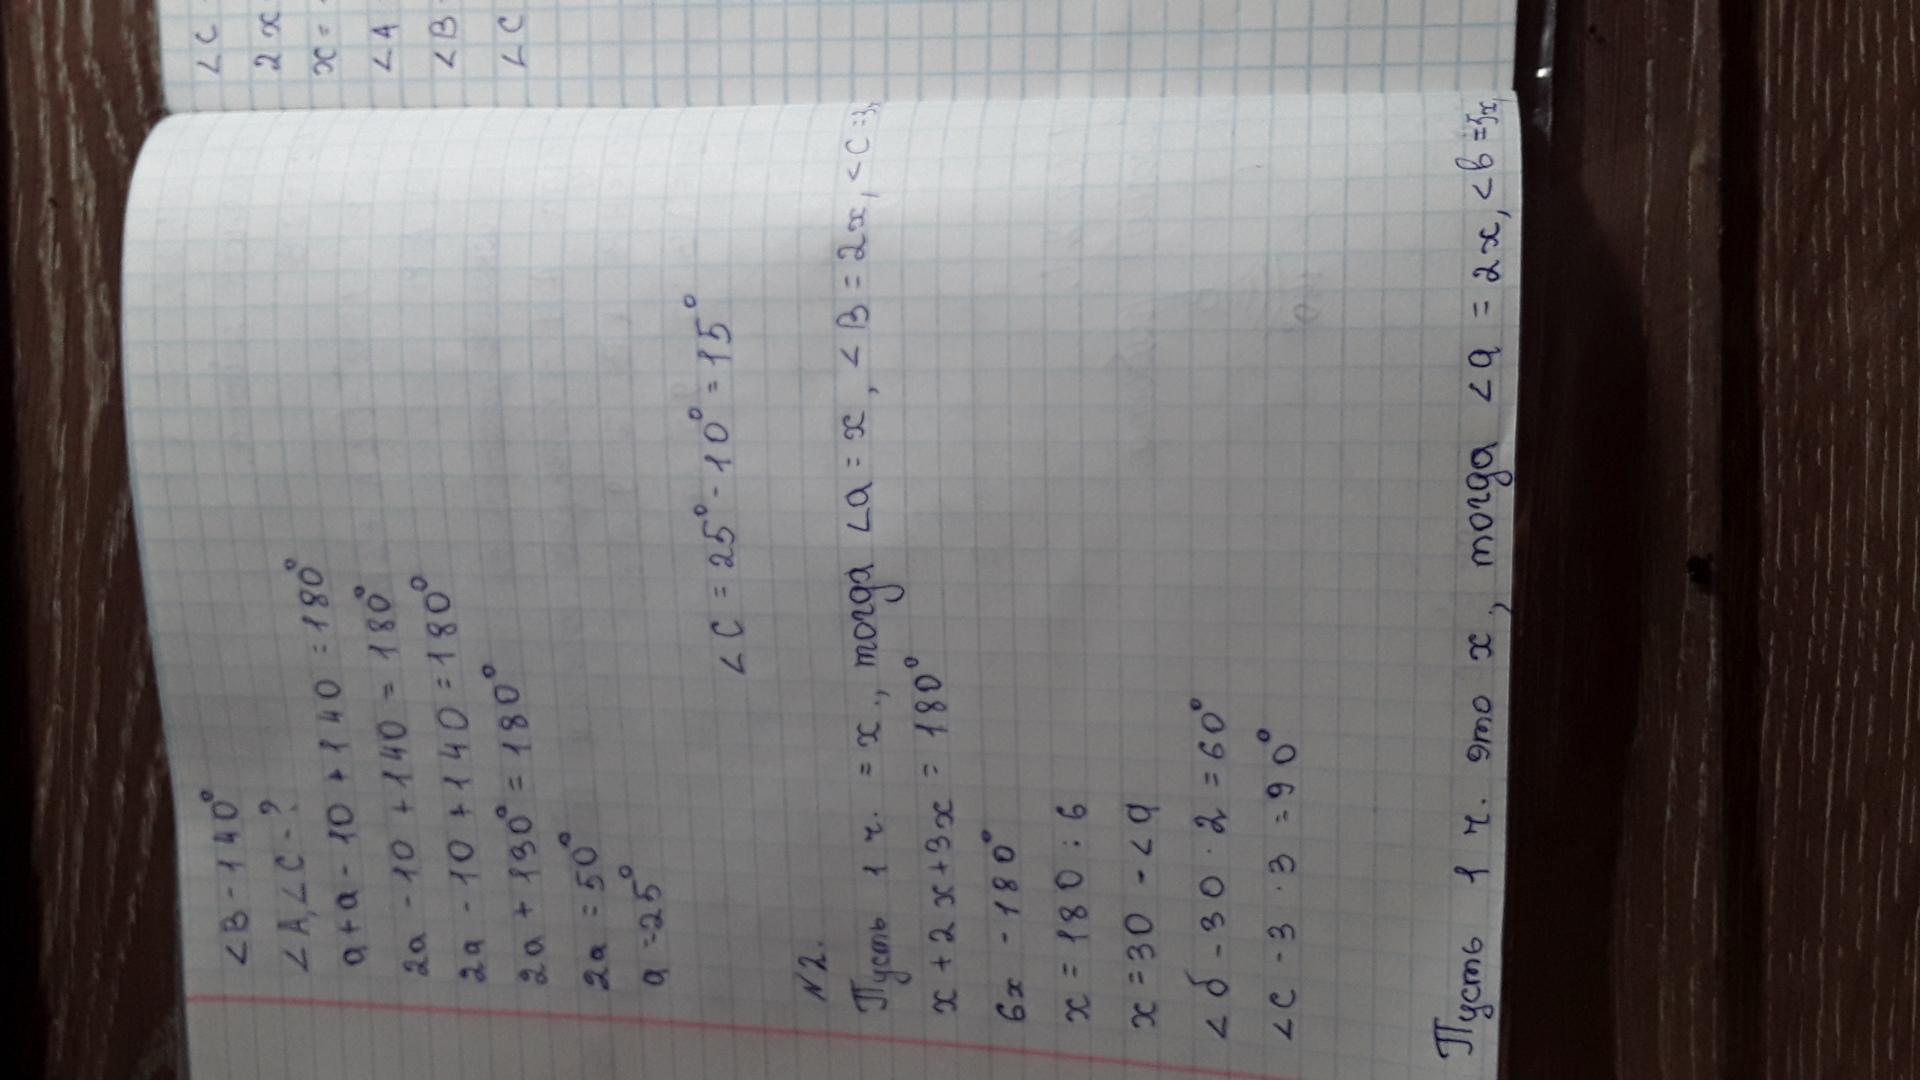 <B - 140°
<A, <C - ?
a + a - 10 + 140 = 180°
2a - 10 + 140 = 180°
2a - 10 + 140 = 180°
2a + 130° = 180°
2a = 50°
a = 25°
<C = 25° - 10° = 15°
N2.
Пусть 1 ч. = x, тогда <a = x, <B = 2x, <C = 3x
x + 2x + 3x = 180°
6x - 180°
x = 180 : 6
x = 30 - <a
<б - 30 · 2 = 60°
<C - 3 · 3 = 90°
Пусть 1 ч. это x, тогда <a = 2x, <в = 3x,
<C
2x
x =
<A
<B
<C